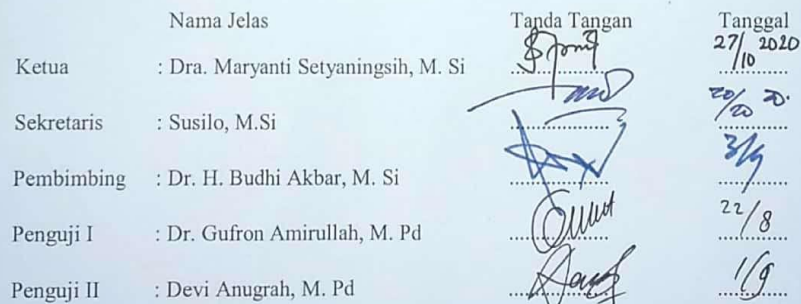 Nama Jelas Tanda Tangan Tanggal
Ketua : Dra. Maryanti Setyaningsih, M. Si ............... 27/10 2020
Sekretaris : Susilo, M.Si ............... 20/20 20.
Pembimbing : Dr. H. Budhi Akbar, M. Si ............... 3/9
Penguji I : Dr. Gufron Amirullah, M. Pd ............... 22/8
Penguji II : Devi Anugrah, M. Pd ............... 1/9